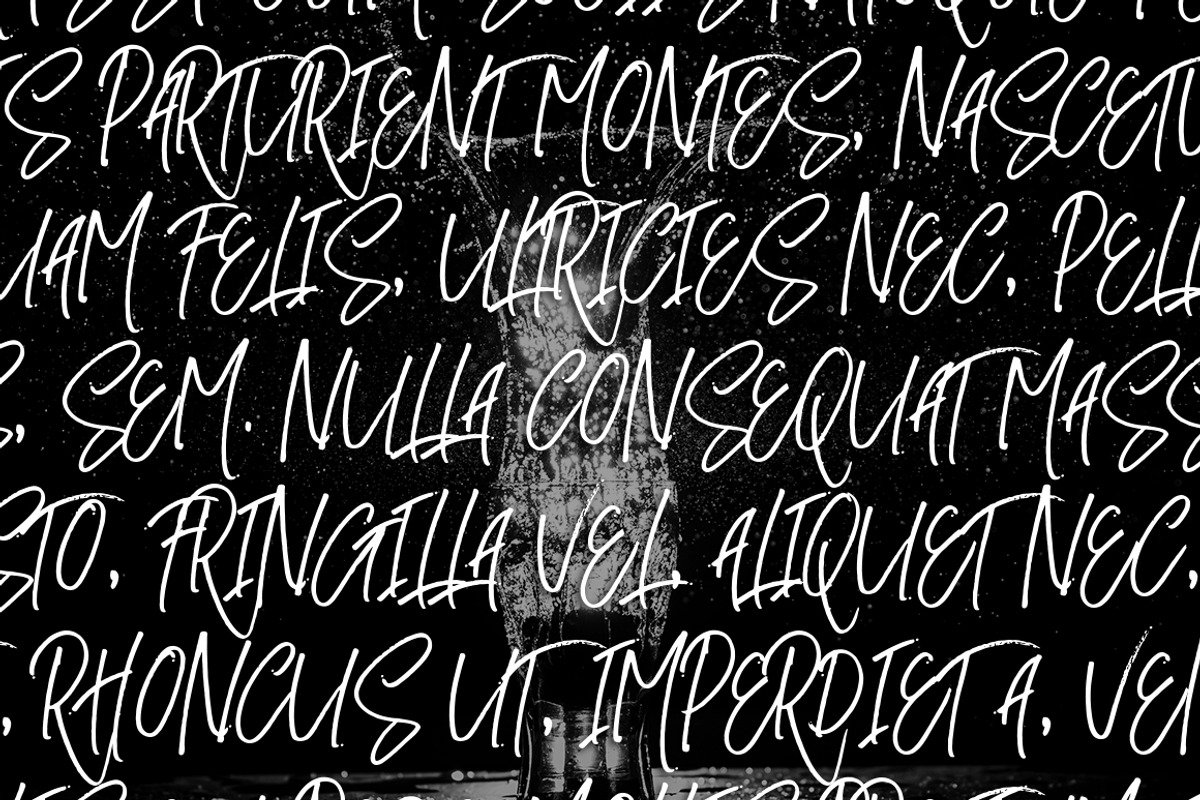 S PARTURIENT MONTES, NASCETU
UAM FELIS, ULTRICIES NEC, PELL
, SEM. NULLA CONSEQUAT MASS
STO, FRINGILLA VEL, ALIQUET NEC,
, RHONCUS UT, IMPERDIET A, VEN